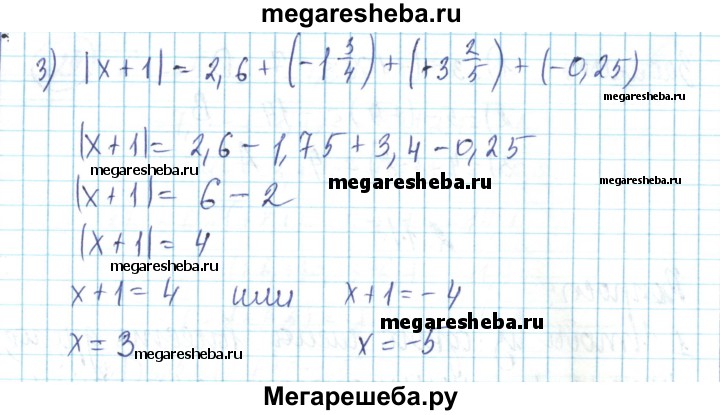 megaresheba.ru
3) |x+1| = 2,6 + (-1 3/4) + (+3 2/5) + (-0,25)
megaresheba.ru
|x+1| = 2,6 - 1,75 + 3,4 - 0,25
megaresheba.ru megaresheba.ru megaresheba.ru
|x+1| = 6 - 2
|x+1| = 4
megaresheba.ru
x+1 = 4 или x+1 = -4
megaresheba.ru
x = 3 megaresheba.ru x = -5
Мегарешеба.ру